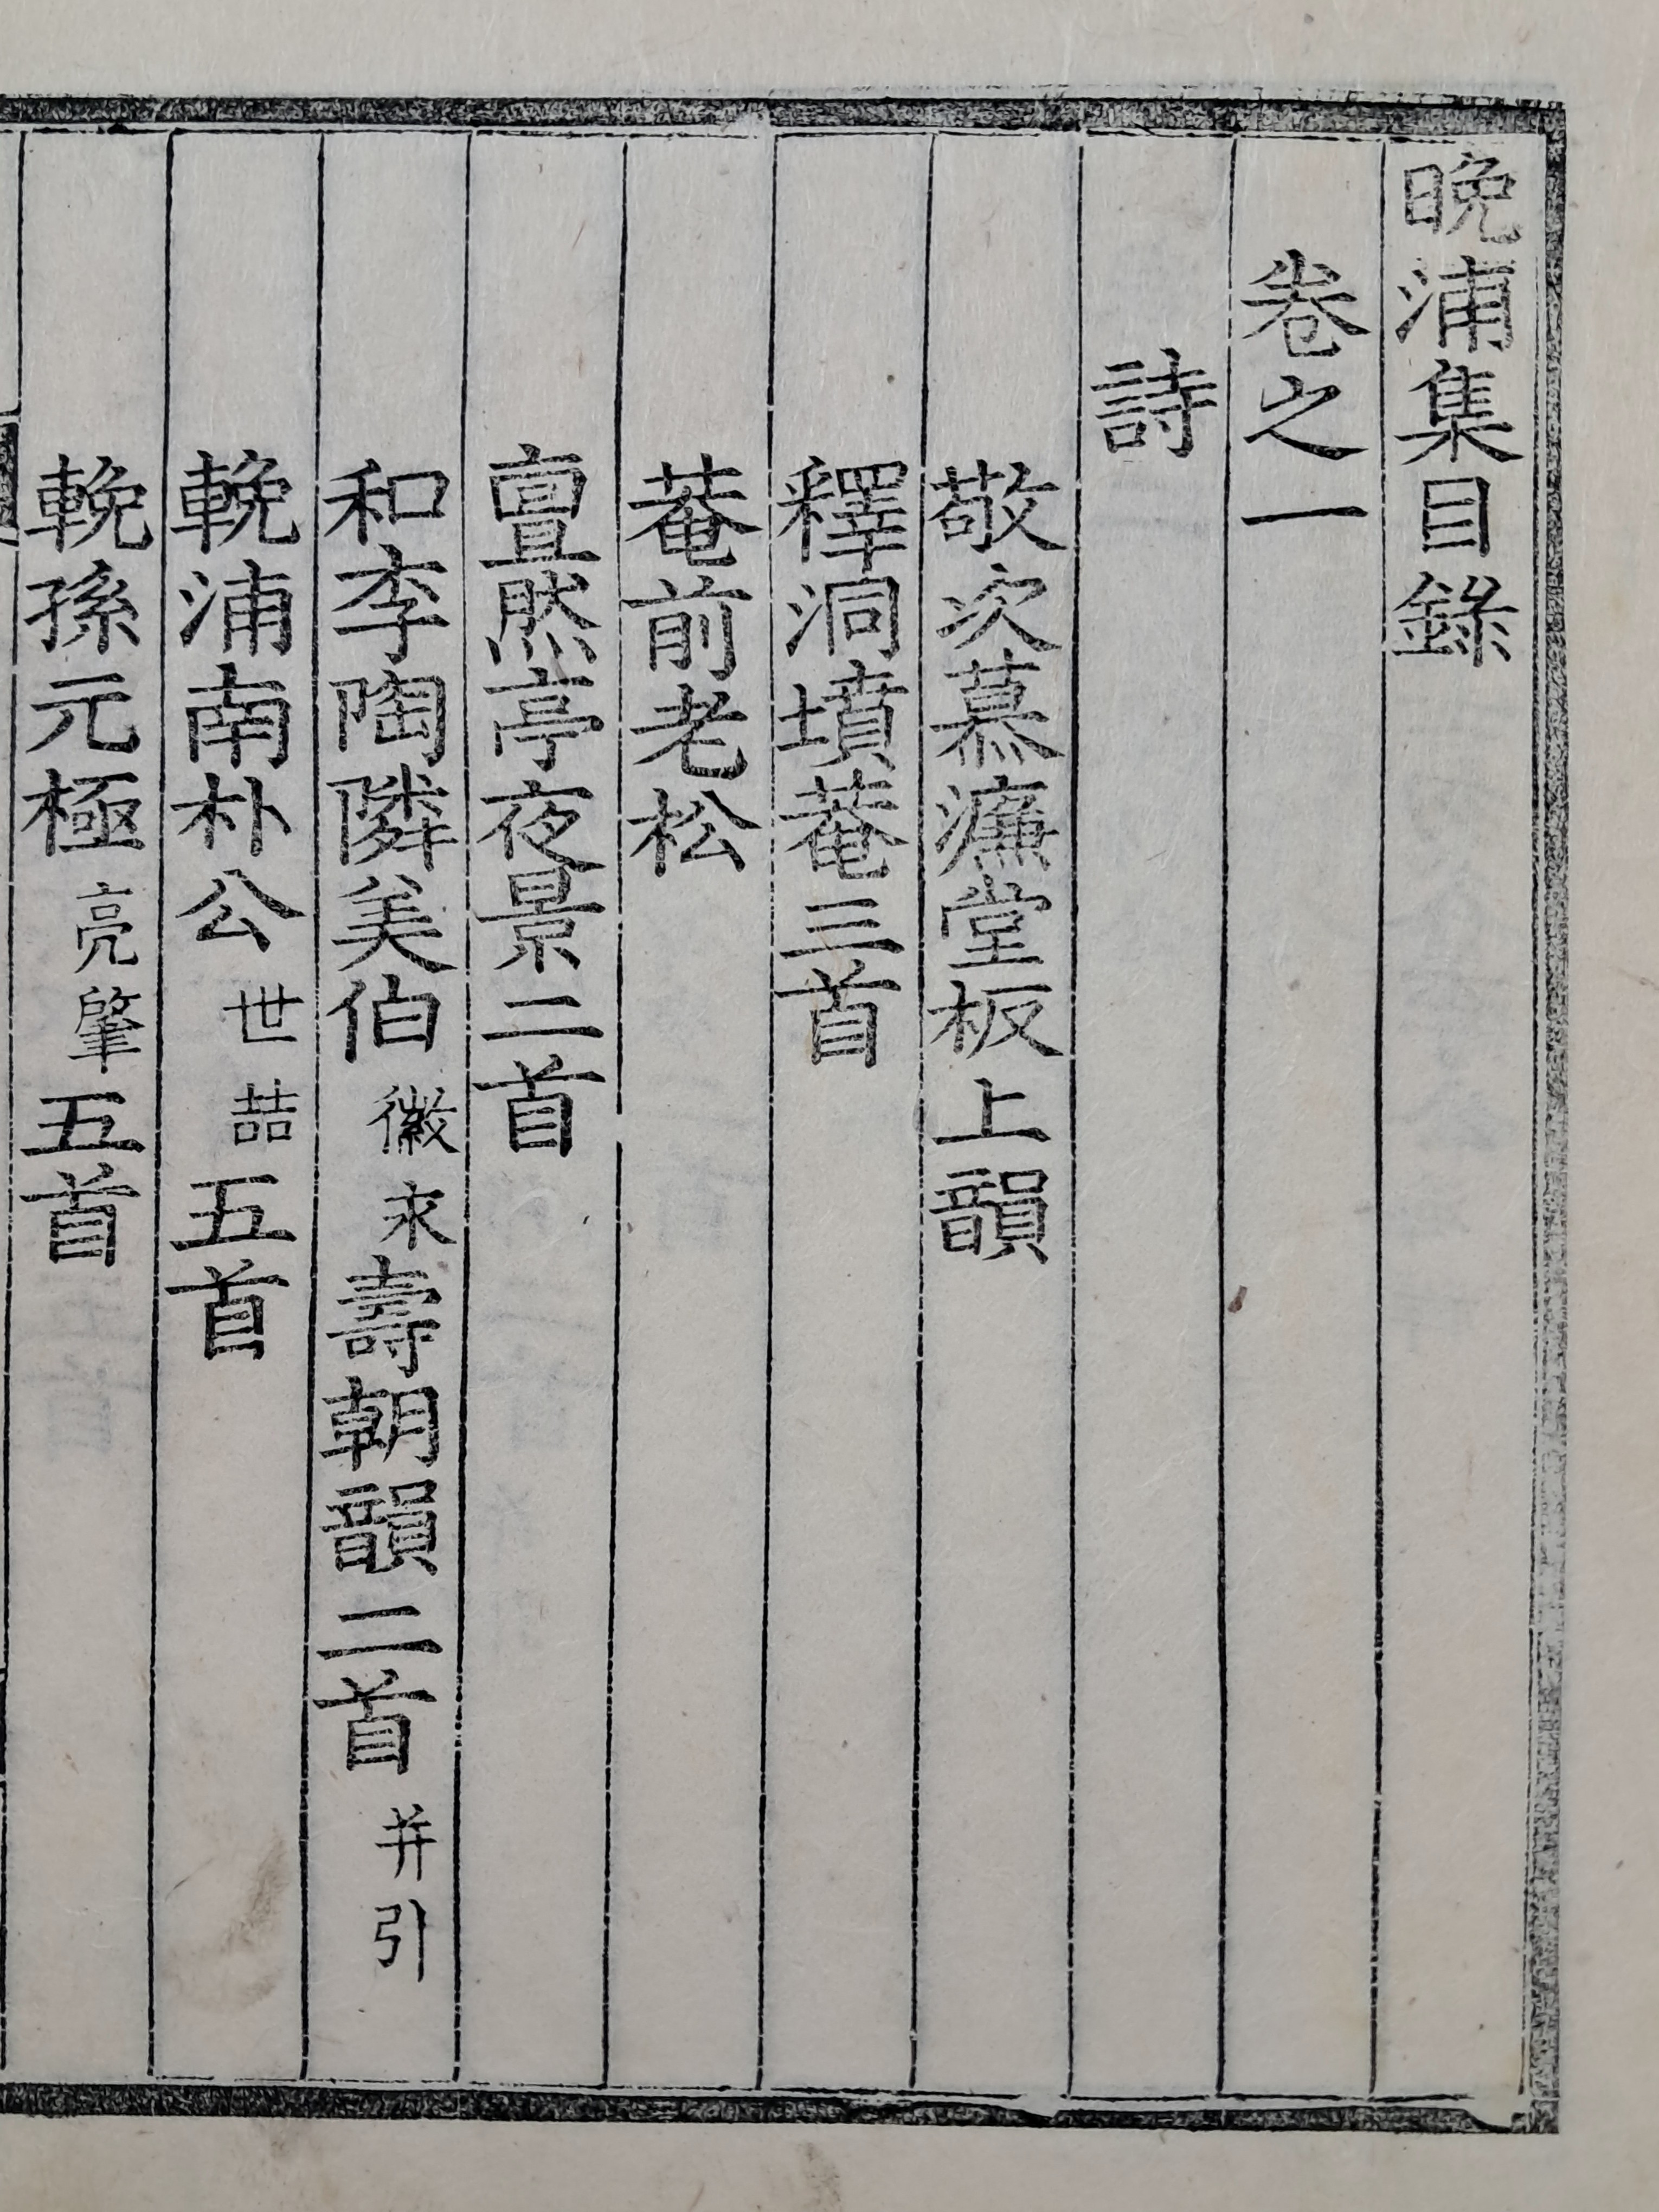 晩浦集目錄
卷之一
詩
敬次慕濂堂板上韻
釋洞墳菴三首
菴前老松
亶然亭夜景二首
和李陶隣美伯徽永壽朝韻二首并引
輓浦南朴公世喆五首
輓孫元極亮肇五首